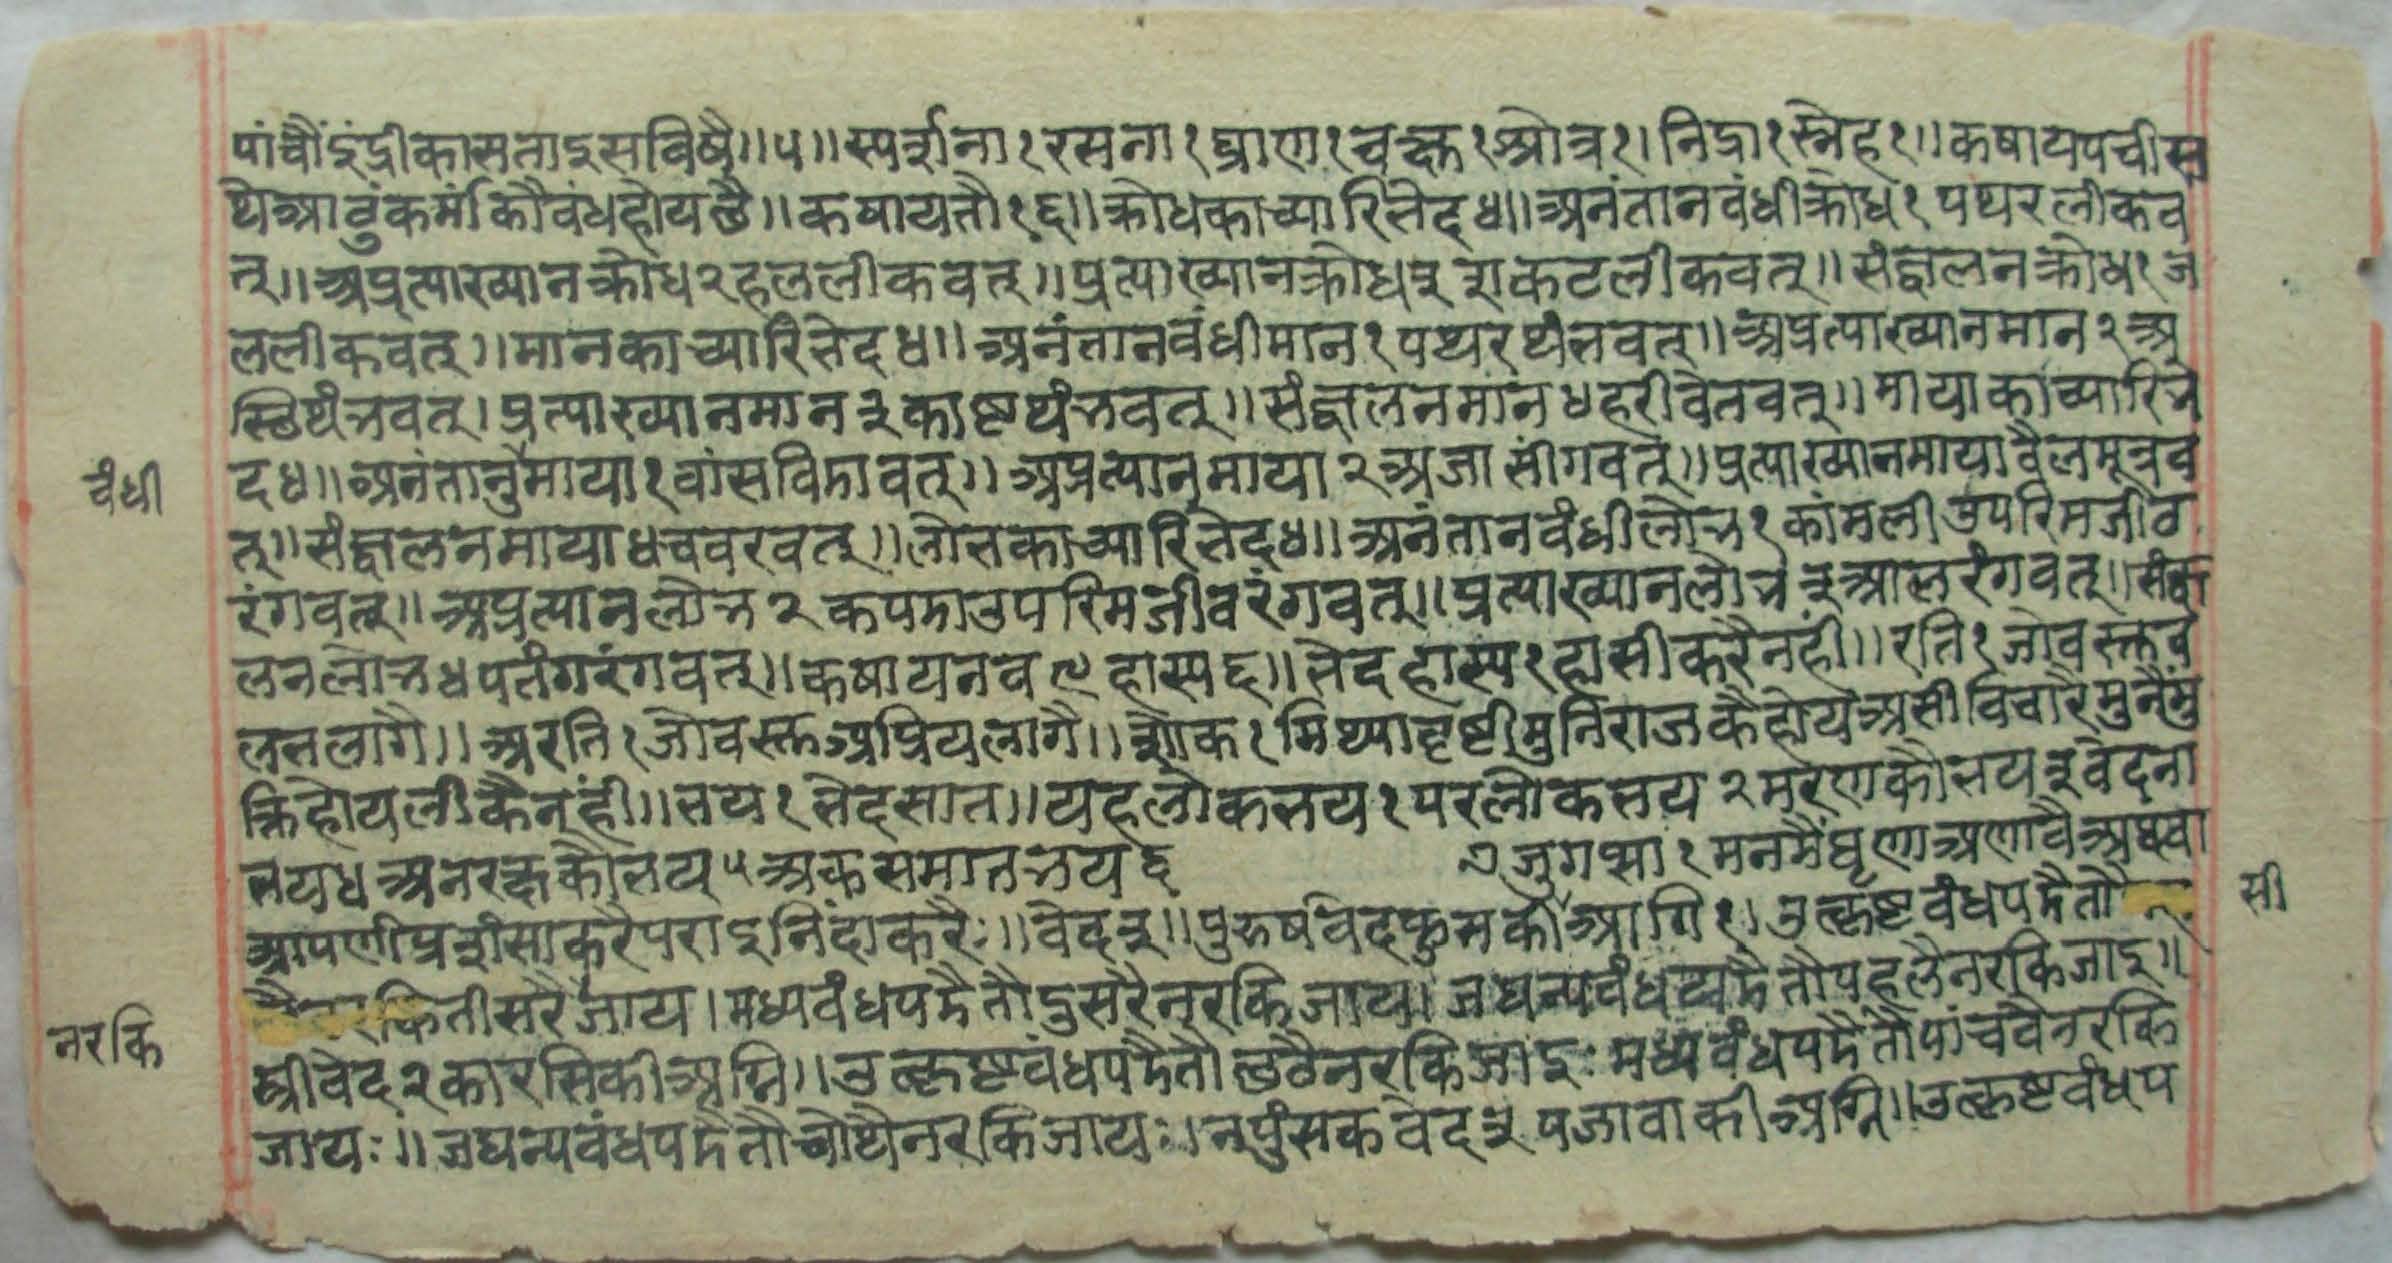 पांचौंइंद्रीकासताइसविषै॥५॥स्पर्शना१रसना१घ्राण१चक्षु१श्रोत्र१।निद्रा१स्नेह१॥कषायपचीस
थेआवुंकर्माकौवंधहोयछै॥कषायतौ१६॥क्रोधकाच्यारिभेद४॥अनंतानवंधीक्रोध१पथरलीकव
त्॥अप्रत्याख्यानक्रोध२हललीकवत्॥प्रत्याख्यानक्रोध३शकटलीकवत्॥संज्वलनक्रोध१ज
ललीकवत्॥मानकाच्यारिभेद४॥अनंतानवंधीमान१पथरथंभवत्॥अप्रत्याख्यानमान२अ
स्छिथंभवत्।प्रत्याख्यानमान३काष्टथंभवत्॥संज्वलनमांन४हरीवेतवत्॥मायाकाच्यारिभे
द४॥अनंतानुमाया१वांसविडावत्॥अप्रत्यानमाया२अजासींगवत्॥प्रत्याख्यानमायावैलमूत्रव
त्॥संज्वलनमाया४चवरवत्॥लोभकाच्यारिभेद४॥अनंतानवंधीलोभ१कांमलीउपरिमजीठ
रंगवत्॥अप्रत्यानलोभ२कपडाउपरिमजीवरंगवत्॥प्रत्याख्यानलोभ३आलरंगवत्॥संज्व
लनलोभ४पतंगरंगवत्॥कषायनव९हास्य६॥भेदहास्य१हासीकरैनहीं॥रति१जोवस्तव
लभलागै॥अरति१जोवस्तअप्रियलागै॥शोक१मिथ्यादृष्टीमुनिराजकैहोयअसीविचारैमुनैंमु
क्तिहोयलीकैनहीं॥भय१भेदसात॥यहलोकभय१परलोकभय२मरणकौभय३वेदना
भय४अनरक्षकौभय५अकसमातभय६ ७जुगप्सा१मनमैंघृणाअणावैअथवा
आपणीप्रशंसाकरैपराइनिंदाकरैः॥वेद३॥पुरुषवेदफुसकीआगि१।उत्कृष्टवंधपडैतौ
कितीसरैजाय।मध्यवंधपडैतौदुसरैनरकिजाय।जघन्यवंधपडैतौपहलैनरकिजाइ॥
स्त्रीवेद२कारसिकीअग्नि॥उत्कृष्टवंधपडैतौछठैनरकिजाइःमध्यवंधपडैतौपांचवैनरकि
जायः॥जघन्यवंधपडैतौचोथैनरकिजायः।नपुंसकवेद३पजावाकीअग्नि॥उत्कृष्टवंधप
वंधी
नरकि
सी